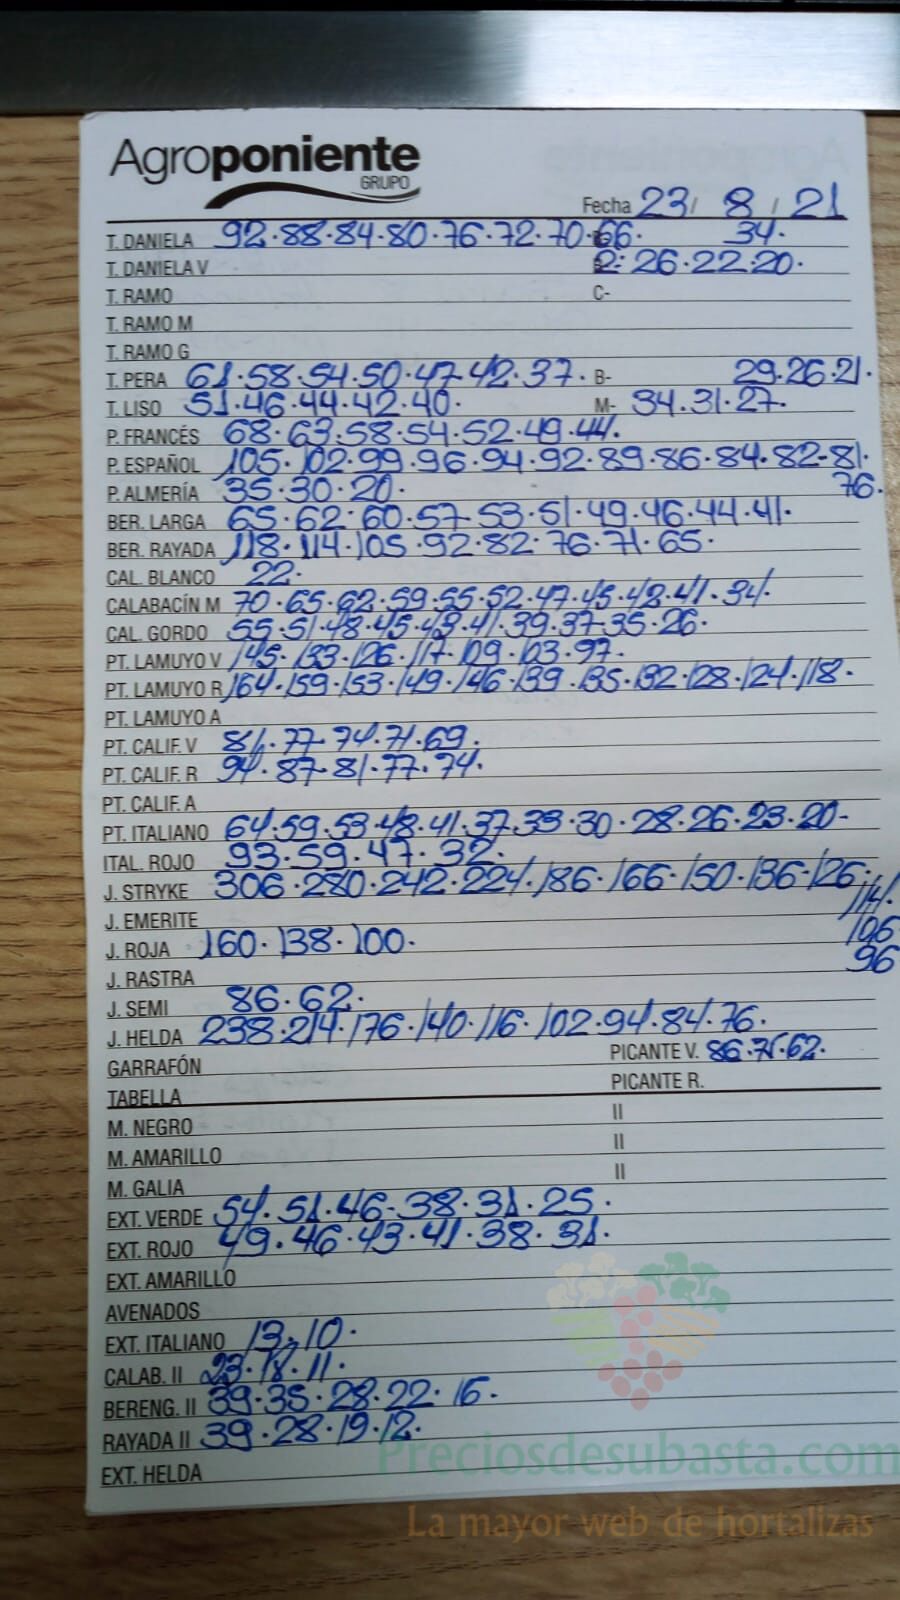 Agroponiente
GRUPO
Fecha 23/ 8 / 21
T. DANIELA 92·88·84·80·76·72·70·66· 34·
T. DANIELA V 2: 26·22·20·
T. RAMO C-
T. RAMO M
T. RAMO G
T. PERA 61·58·54·50·47·42·37· B- 29·26·21·
T. LISO 51·46·44·42·40· M- 34·31·27·
P. FRANCÉS 68·63·58·54·52·49·44·
P. ESPAÑOL 105·102·99·96·94·92·89·86·84·82-81·
P. ALMERÍA 35·30·20· 76·
BER. LARGA 65·62·60·57·53·51·49·46·44·41·
BER. RAYADA 118·114·105·92·82·76·71·65·
CAL. BLANCO 22·
CALABACÍN M 70·65·62·59·55·52·47·45·42·41·34·
CAL. GORDO 55·51·48·45·43·41·39·37·35·26·
PT. LAMUYO V 145·133·126·117·109·103·97·
PT. LAMUYO R 164·159·153·149·146·139·135·132·128·124·118·
PT. LAMUYO A
PT. CALIF. V 81·77·74·71·69·
PT. CALIF. R 94·87·81·77·74·
PT. CALIF. A
PT. ITALIANO 64·59·53·48·41·37·33·30·28·26·23·20-
ITAL. ROJO 93·59·47·32·
J. STRYKE 306·280·242·224·186·166·150·136·126·
J. EMERITE 114·
J. ROJA 160·138·100· 106
J. RASTRA 96
J. SEMI 86·62·
J. HELDA 238·214·176·140·116·102·94·84·76·
GARRAFÓN PICANTE V. 86·71·62·
TABELLA PICANTE R.
M. NEGRO II
M. AMARILLO II
M. GALIA II
EXT. VERDE 54·51·46-38·31·25·
EXT. ROJO 49·46·43·41·38·31·
EXT. AMARILLO
AVENADOS
EXT. ITALIANO 13·10·
CALAB. II 23·18·11·
BERENG. II 39·35·28·22·16·
RAYADA II 39·28·19·12·
EXT. HELDA
Preciosdesubasta.com
La mayor web de hortalizas